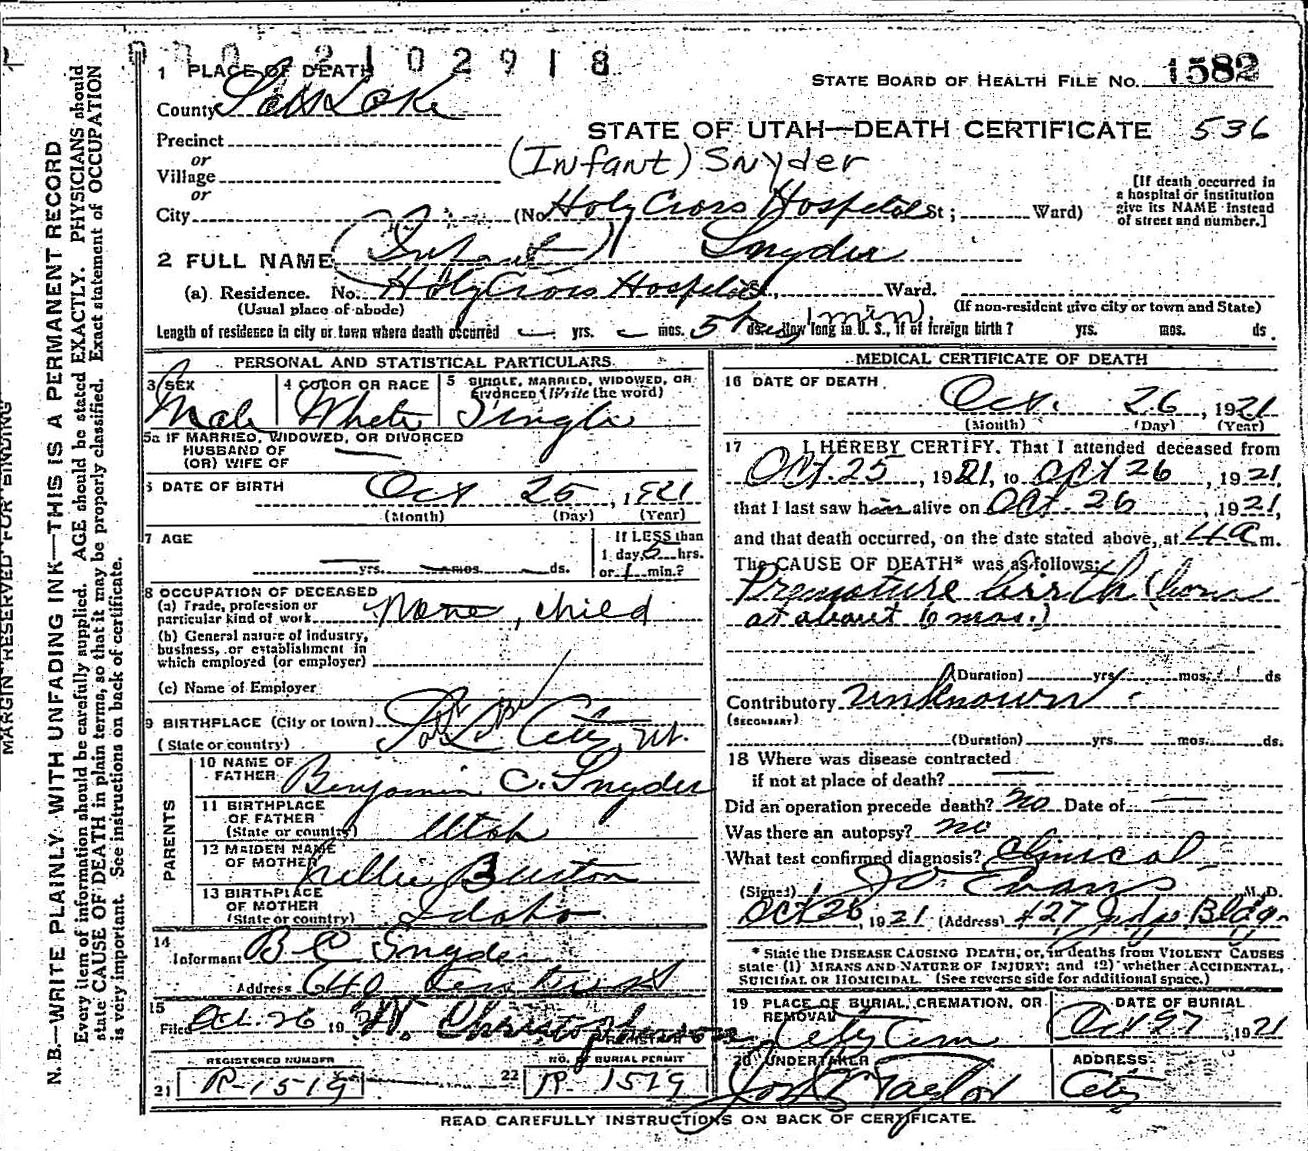 2102918
1 PLACE OF DEATH
STATE BOARD OF HEALTH FILE NO. 1582
County Salt Lake
STATE OF UTAH—DEATH CERTIFICATE 536
Precinct
or
(Infant) Snyder
Village
or
[If death occurred in a hospital or institution give its NAME instead of street and number.]
City (No. Holy Cross Hospital St; Ward)
2 FULL NAME (Infant) Snyder
(a) Residence. No. Holy Cross Hospital St., Ward.
(Usual place of abode) (If non-resident give city or town and State)
Length of residence in city or town where death occurred — yrs. — mos. 5 hrs 1 min. ds. How long in U. S., if of foreign birth? yrs. mos. ds.
PERSONAL AND STATISTICAL PARTICULARS
3 SEX Male
4 COLOR OR RACE White
5 SINGLE, MARRIED, WIDOWED, OR DIVORCED (Write the word) Single
5a IF MARRIED, WIDOWED, OR DIVORCED
HUSBAND OF
(OR) WIFE OF —
6 DATE OF BIRTH Oct 25, 1921
(Month) (Day) (Year)
7 AGE — yrs. — mos. — ds.
If LESS than
1 day, 5 hrs.
or 1 min.?
8 OCCUPATION OF DECEASED
(a) Trade, profession or
particular kind of work None, child
(b) General nature of industry,
business, or establishment in
which employed (or employer)
(c) Name of Employer
9 BIRTHPLACE (City or town)
(State or country) City, Ut.
PARENTS
10 NAME OF
FATHER Benjamin C. Snyder
11 BIRTHPLACE
OF FATHER
(State or country) Utah
12 MAIDEN NAME
OF MOTHER Nellie Burton
13 BIRTHPLACE
OF MOTHER
(State or country) Idaho
14
Informant B C Snyder
Address 640
15
Filed Oct. 26 19
REGISTERED NUMBER
21 R-1519
NO. OF BURIAL PERMIT
22 R-1519
MEDICAL CERTIFICATE OF DEATH
16 DATE OF DEATH
Oct. 26, 1921
(Month) (Day) (Year)
17 I HEREBY CERTIFY. That I attended deceased from
Oct. 25, 1921, to Oct 26, 1921,
that I last saw him alive on Oct. 26, 1921,
and that death occurred, on the date stated above, at 4 a m.
The CAUSE OF DEATH* was as follows:
Premature birth (born
at about 6 mos.)
(Duration) yrs. mos. ds
Contributory unknown
(SECONDARY)
(Duration) yrs. mos. ds.
18 Where was disease contracted
if not at place of death? —
Did an operation precede death? no Date of —
Was there an autopsy? no
What test confirmed diagnosis? Clinical
(Signed) Evans M. D.
Oct 26, 1921 (Address) 427 Judge Bldg.
* State the DISEASE CAUSING DEATH, or, in deaths from VIOLENT CAUSES
state (1) MEANS AND NATURE OF INJURY; and (2) whether ACCIDENTAL,
SUICIDAL OR HOMICIDAL. (See reverse side for additional space.)
19 PLACE OF BURIAL, CREMATION, OR
REMOVAL City Cem
DATE OF BURIAL
Oct 27, 1921
20 UNDERTAKER
Taylor
ADDRESS
City
READ CAREFULLY INSTRUCTIONS ON BACK OF CERTIFICATE.
MARGIN RESERVED FOR BINDING
N. B.—WRITE PLAINLY WITH UNFADING INK—THIS IS A PERMANENT RECORD
Every item of information should be carefully supplied. AGE should be stated EXACTLY. PHYSICIANS should
state CAUSE OF DEATH in plain terms, so that it may be properly classified. Exact statement of OCCUPATION
is very important. See instructions on back of certificate.